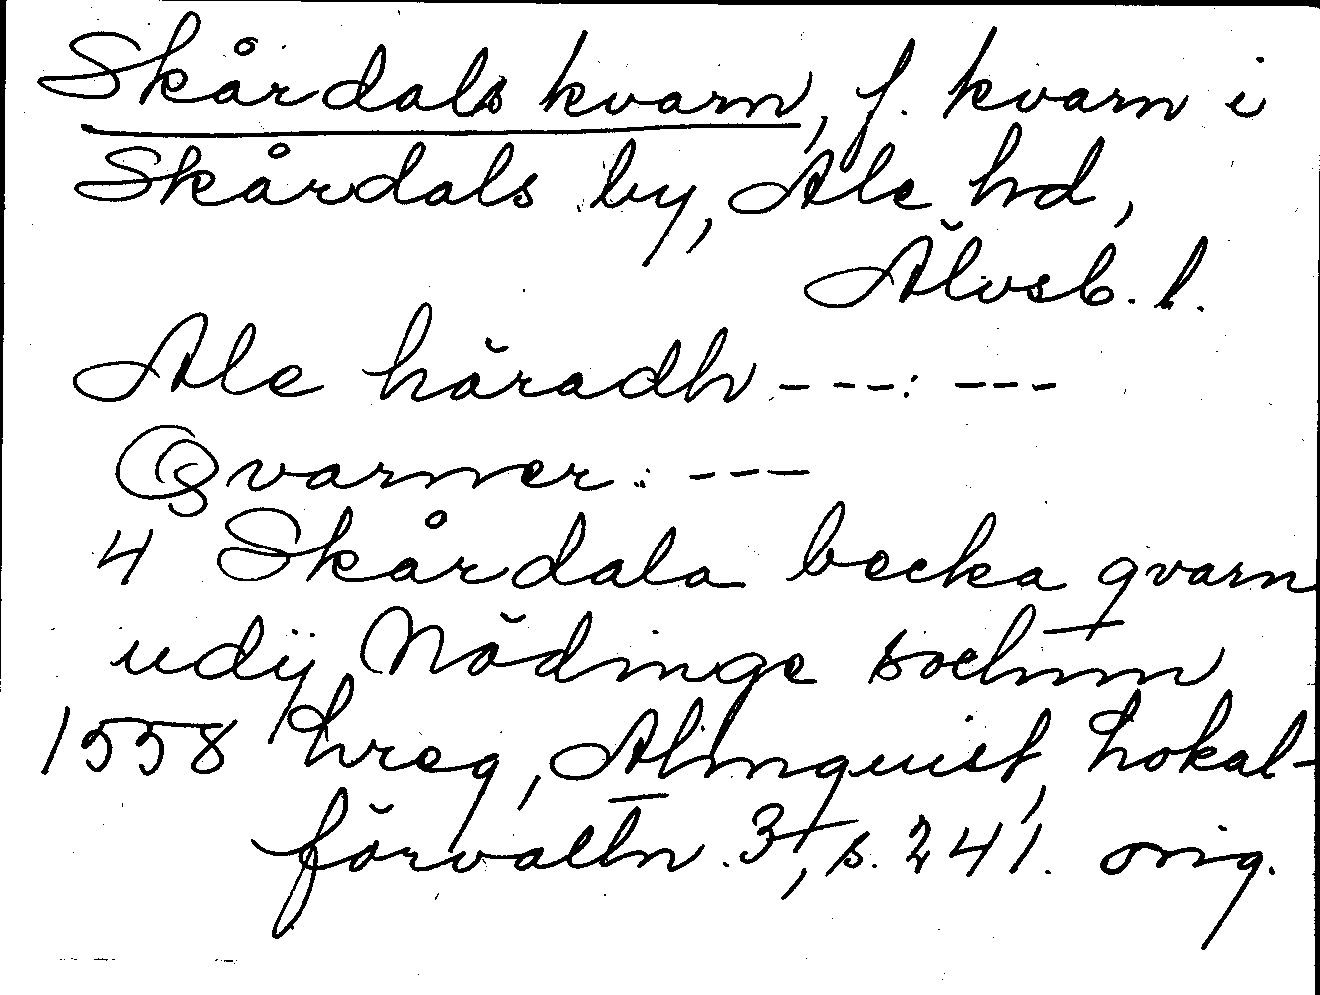 Skårdals kvarn, f. kvarn i
Skårdals by, Ale hd,
Älvsb. l.
Ale häradh ---: ---
Qvarner: ---
4 Skårdala becka qvarn
udij Nödinge sochnn
1558 hreg, Almquist, Lokal-
förvaltn. 3, s. 241. orig.